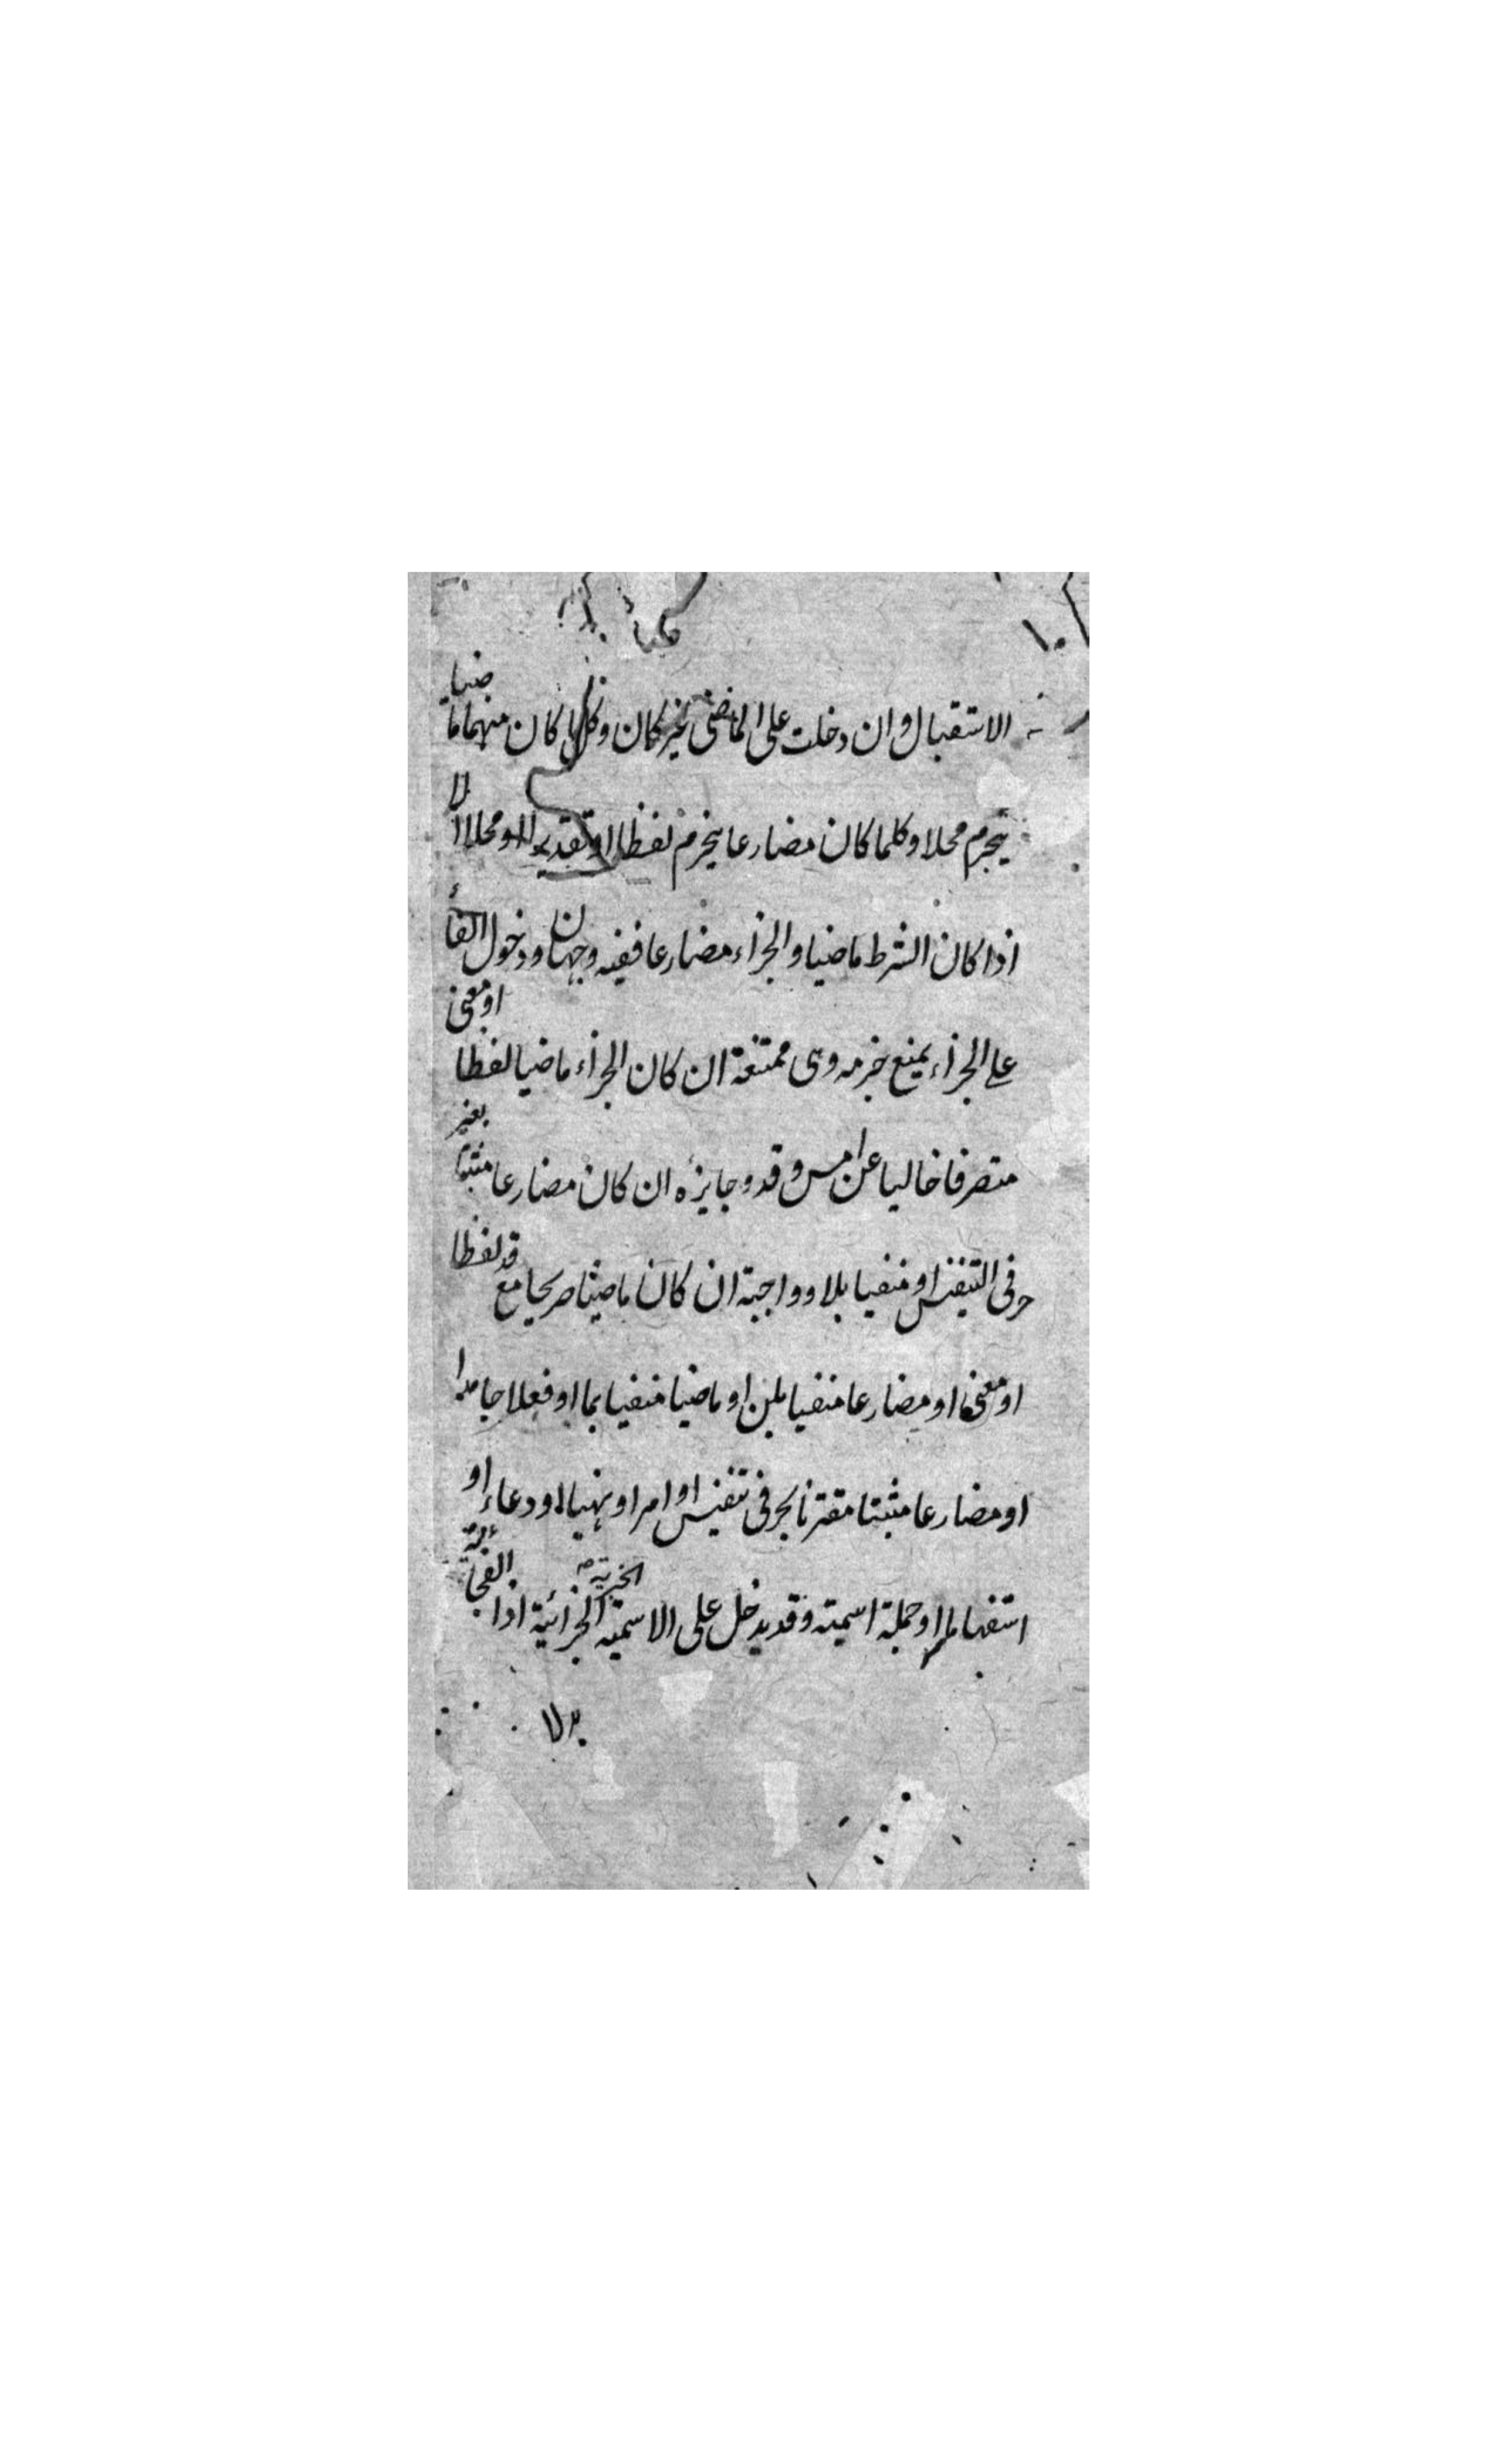 الاستقبال وان دخلت على الماضى غير كان وكل ما كان منهما ماضيا
ينجزم محلا وكلما كان مضارعا ينجزم لفظا او تقديرا او محلا الا
اذا كان الشرط ماضيا والجزاء مضارعا ففيه وجهان ودخول الفاء
على الجزاء يمنع جزمه وهى ممتنعة ان كان الجزاء ماضيا لفظا او معنى
متصرفا خاليا عن امس وقد وجايزه ان كان مضارعا مثبتا بغير
حرفى التنفيس او منفيا بلا وواجبة ان كان ماضيا صريحا مع قد لفظا
او معنى او مضارعا منفيا بلن او ماضيا منفيا بما او فعلا جامدا
او مضارعا مثبتا مقترنا بحرفى تنفيس او امرا ونهيا او دعاء او
استفهاما او جملة اسمية وقد يدخل على الاسمية الجزائية الخبرية اذا الفجائية
بدلا